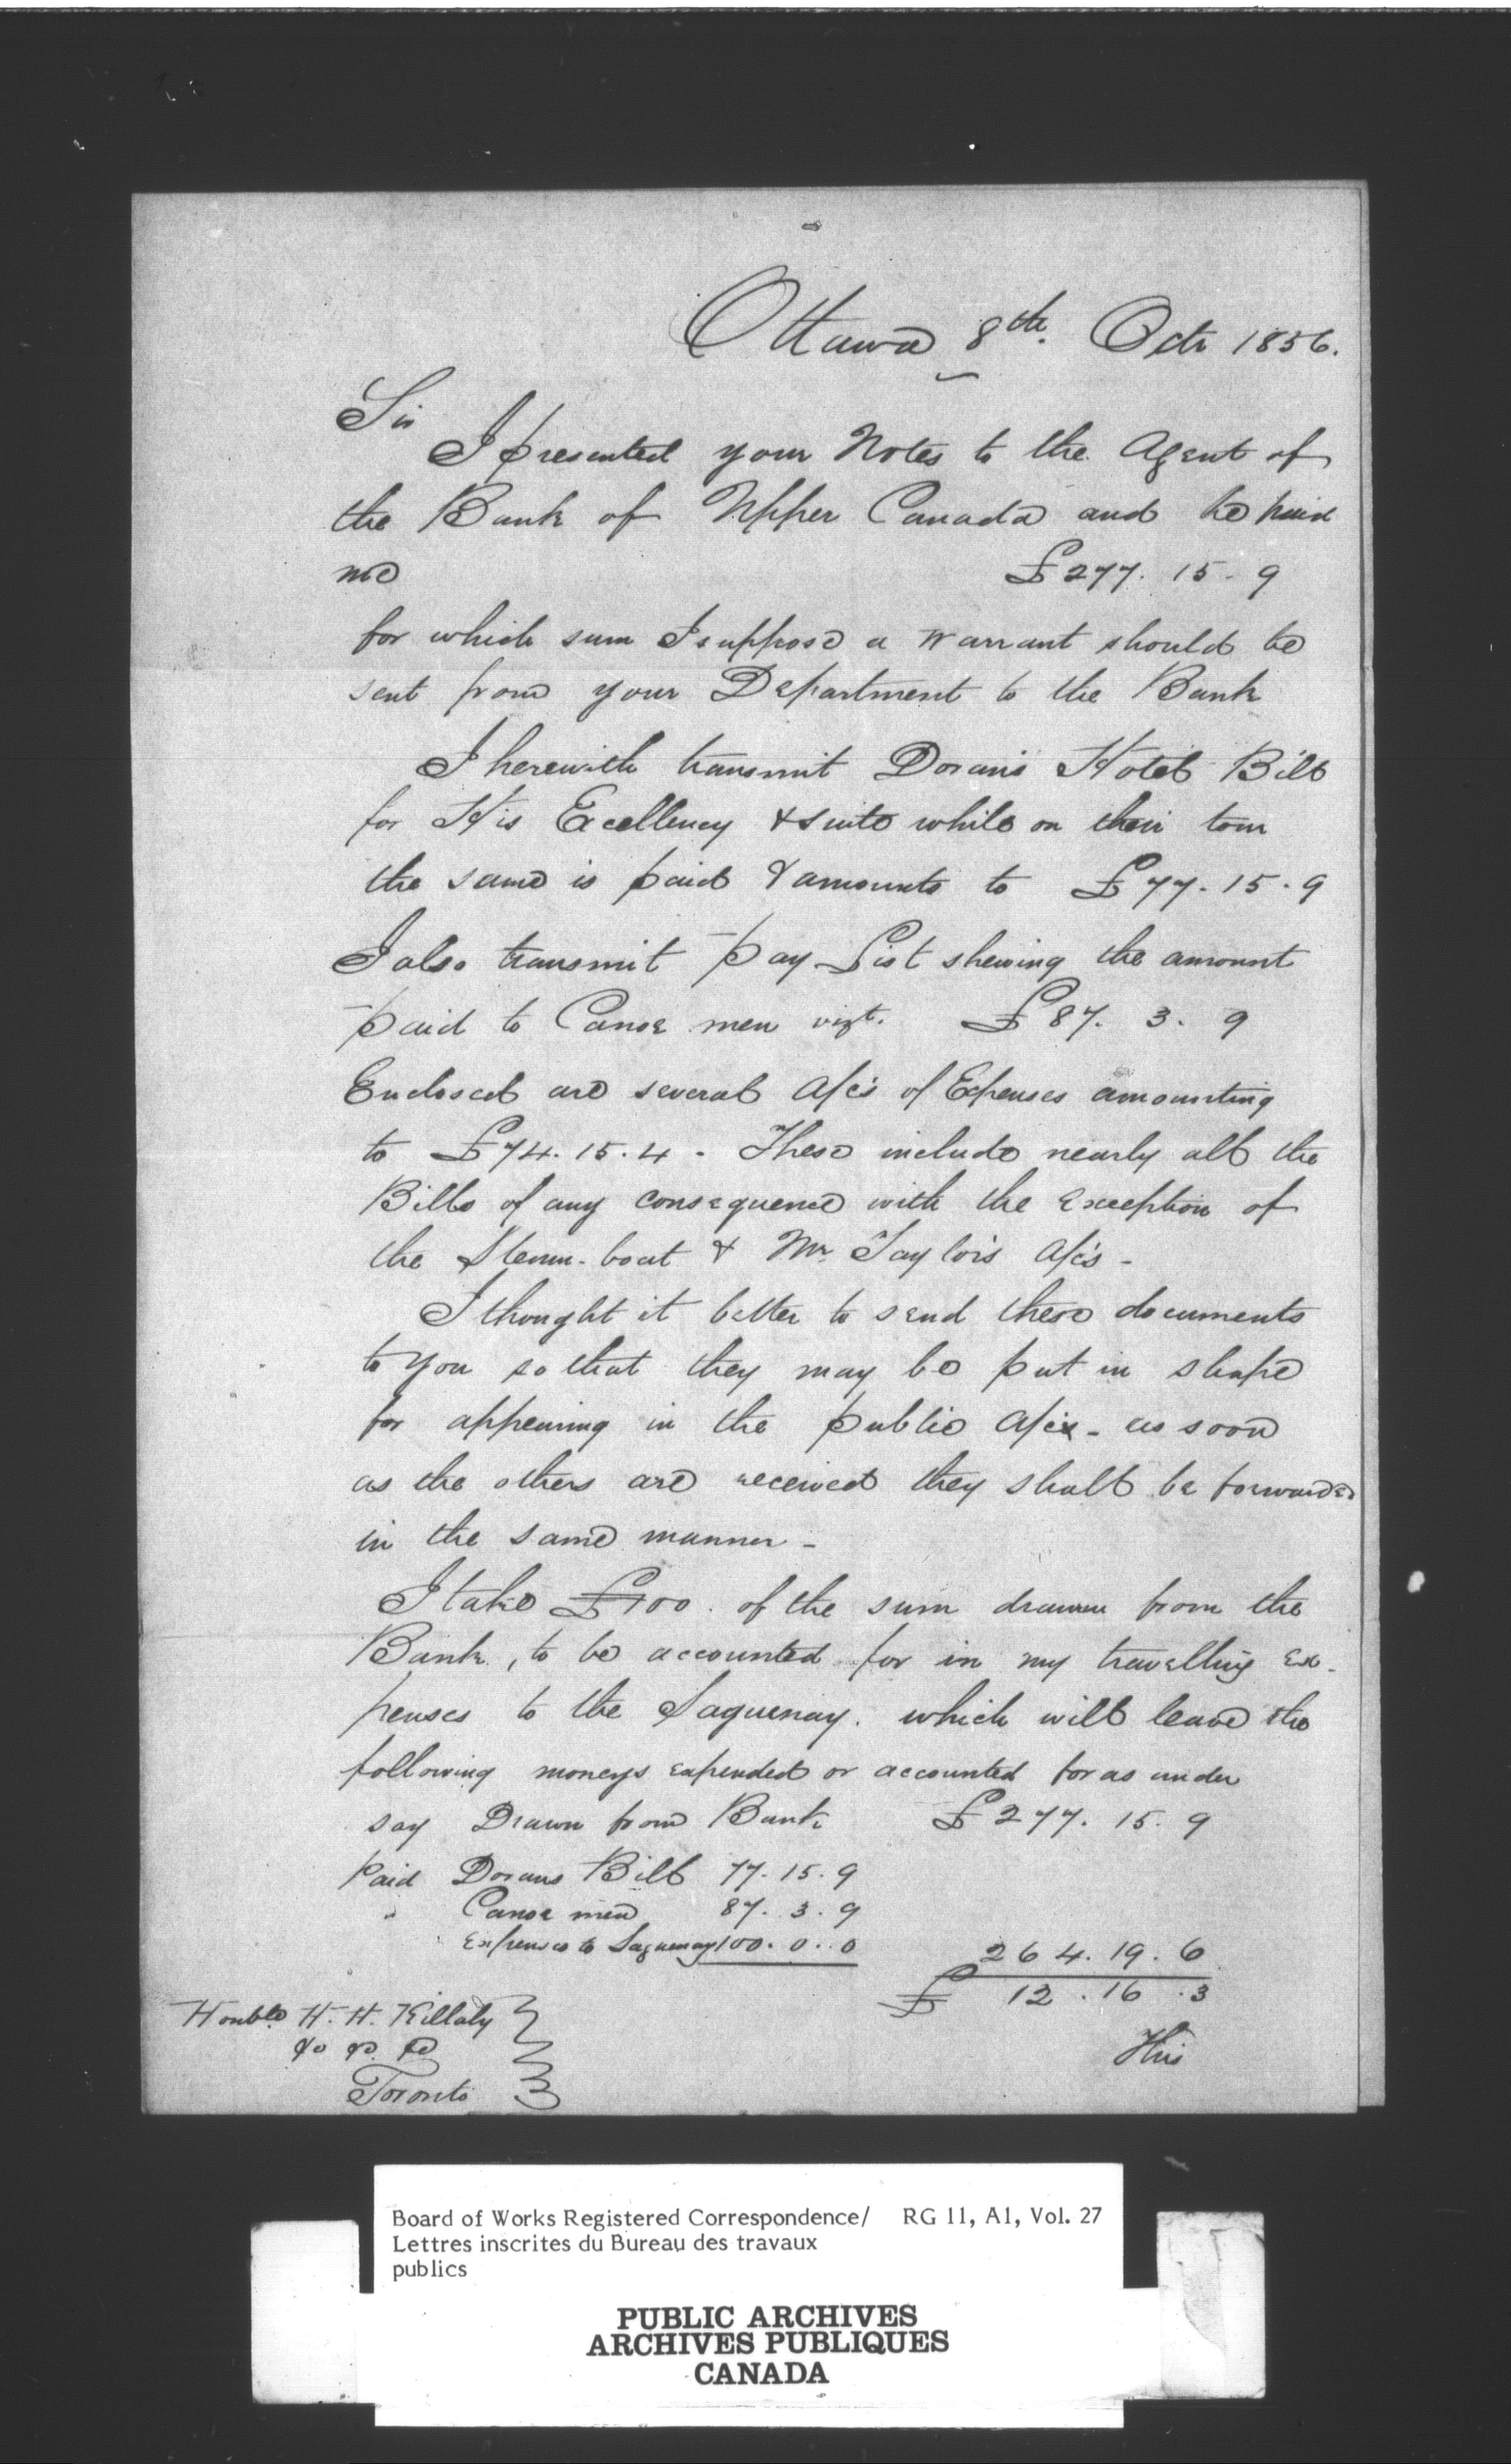 Ottawa 8th. Octr 1856.
Sir
I presented your Notes to the Agent of
the Bank of Upper Canada and he paid
me £277. 15 - 9
for which sum I suppose a warrant should be
sent from your Department to the Bank
I herewith transmit Doran's Hotel Bill
for His Excellency & suite while on their tour
the same is paid & amounts to £77. 15. 9
I also transmit Pay List shewing the amount
paid to Canoe men vizt. £87. 3. 9
Enclosed are several a/cs of Expenses amounting
to £74. 15. 4 - These include nearly all the
Bills of any consequence with the exception of
the Steam-boat & Mr Taylor's a/cs -
I thought it better to send these documents
to you so that they may be put in shape
for appearing in the public a/cs - as soon
as the others are received they shall be forwarded
in the same manner -
I take £100. of the sum drawn from the
Bank, to be accounted for in my travelling ex-
penses to the Saguenay. which will leave the
following moneys expended or accounted for as under
say Drawn from Bank £277. 15. 9
Paid Dorans Bill 77. 15. 9
" Canoe men 87. 3. 9
Expenses to Saguenay 100. 0. 0 264. 19. 6
£ 12. 16. 3
Honble H. H. Killaly
&c &c &c
Toronto
This
Board of Works Registered Correspondence/ RG 11, A1, Vol. 27
Lettres inscrites du Bureau des travaux
publics
PUBLIC ARCHIVES
ARCHIVES PUBLIQUES
CANADA